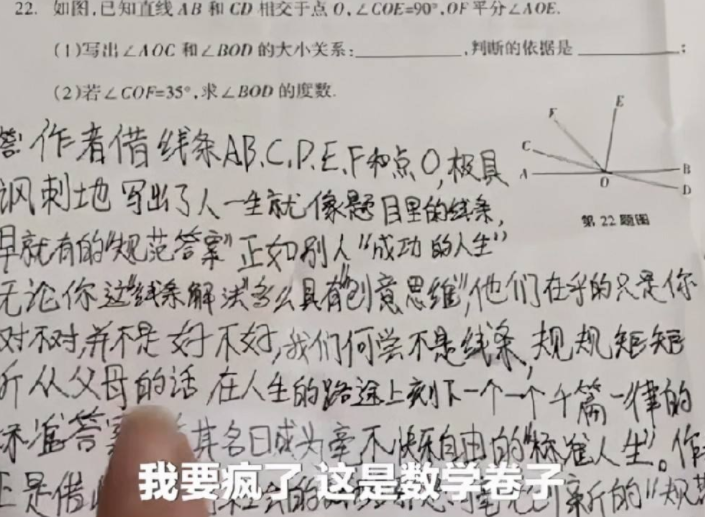 22. 如图,已知直线 AB 和 CD 相交于点 O,∠COE=90°,OF 平分∠AOE.
(1)写出∠AOC 和∠BOD 的大小关系:____________,判断的依据是____________;
(2)若∠COF=35°,求∠BOD 的度数.
F
E
C
A
O
B
D
第 22 题图
答 作者借线条AB、C、D、E、F和点O,极具
讽刺地写出了人一生就像题目里的线条,
早就有的"规范答案"正如别人"成功的人生"
无论你这"线条解法"多么具有"创意思维",他们在乎的只是你
对不对,并不是好不好,我们何尝不是线条,规规矩矩
听从父母的话,在人生的路途上刻下一个一个千篇一律的
标准答 其名曰成为牵不快乐自由的"标准人生"。作
正是借 的"规范
我要疯了 这是数学卷子